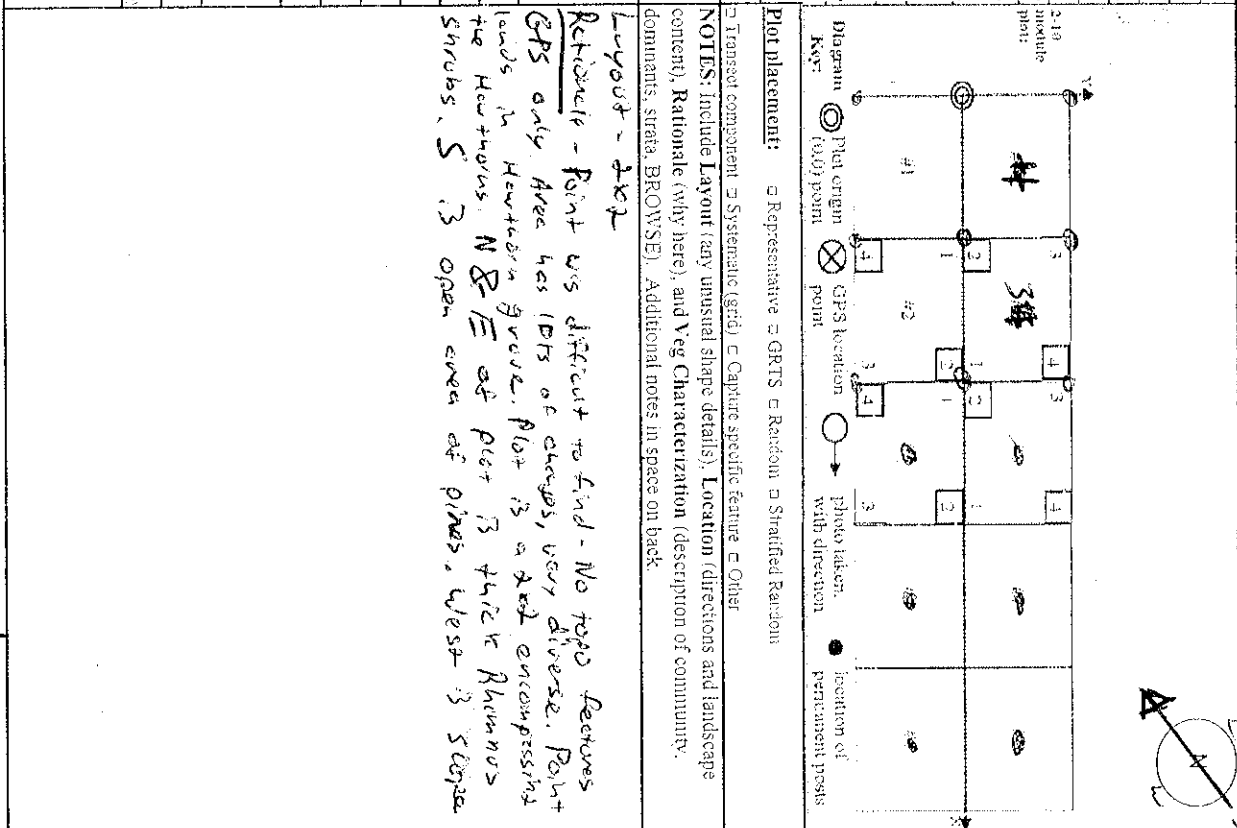 2-10
module
plot:
Y
#4
3
4
3#
3
4
#1
2
1
2
1
2
1
4
#2
2
1
2
3
4
3
X
N
Diagram Key: Plot origin (0,0) point GPS location point photo taken, with direction location of permanent posts
Plot placement: □ Representative □ GRTS □ Random □ Stratified Random
□ Transect component □ Systematic (grid) □ Capture specific feature □ Other
NOTES: Include Layout (any unusual shape details), Location (directions and landscape
content), Rationale (why here), and Veg Characterization (description of community,
dominants, strata, BROWSE). Additional notes in space on back.
Layout - 2x2
Rationale - Point was difficult to find - No topo features
GPS only. Area has lots of changes, very diverse. Point
lands in Hawthorn grove. Plot is a 2x2 encompassing
the Hawthorns. N & E of plot is thick Rhamnus
shrubs. S is open area of pines. West is slope